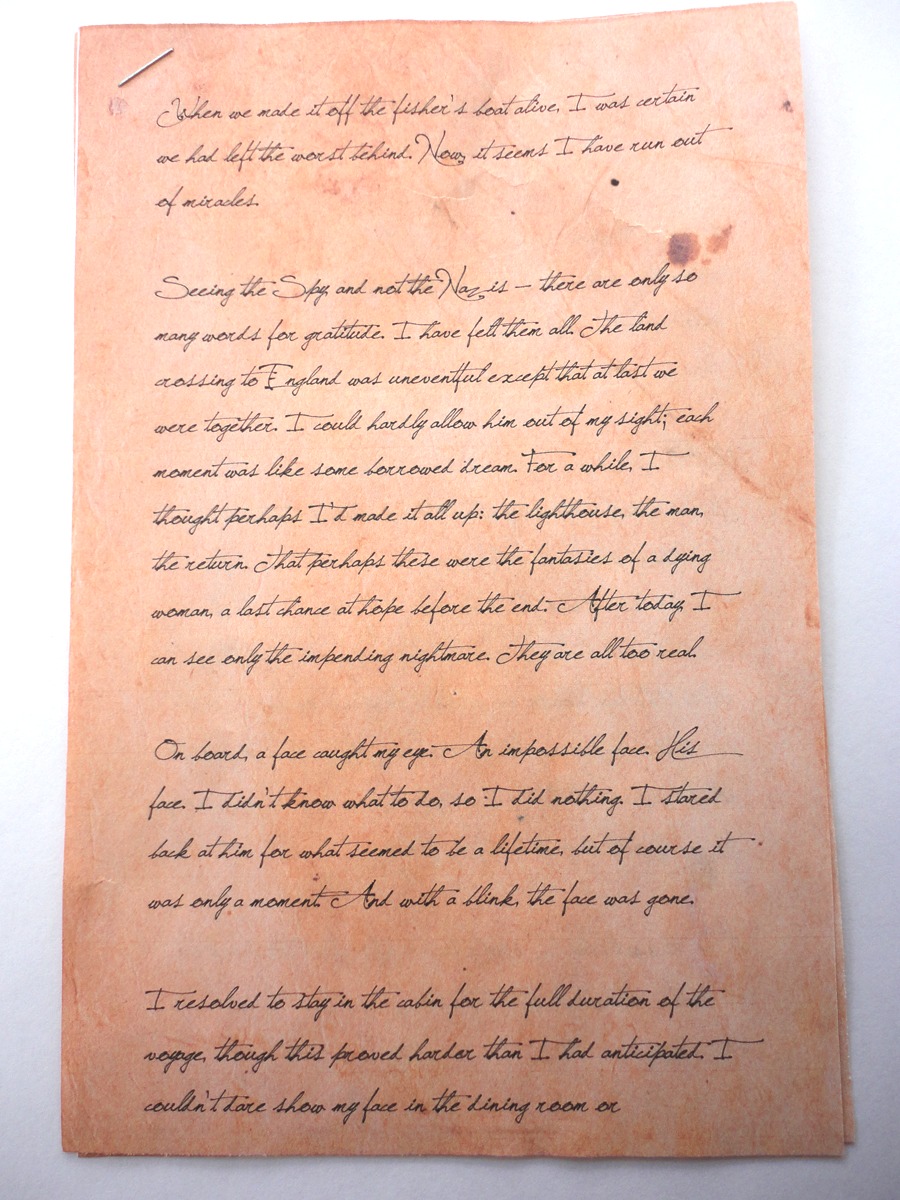 When we made it off the fisher's boat alive, I was certain
we had left the worst behind. Now, it seems I have run out
of miracles.
Seeing the Spy, and not the Nazis – there are only so
many words for gratitude. I have felt them all. The land
crossing to England was uneventful except that at last we
were together. I could hardly allow him out of my sight; each
moment was like some borrowed dream. For a while, I
thought perhaps I'd made it all up: the lighthouse, the man,
the return. That perhaps these were the fantasies of a dying
woman, a last chance at hope before the end. After today, I
can see only the impending nightmare. They are all too real.
On board, a face caught my eye. An impossible face. His
face. I didn't know what to do, so I did nothing. I stared
back at him for what seemed to be a lifetime, but of course it
was only a moment. And with a blink, the face was gone.
I resolved to stay in the cabin for the full duration of the
voyage, though this proved harder than I had anticipated. I
couldn't dare show my face in the dining room or